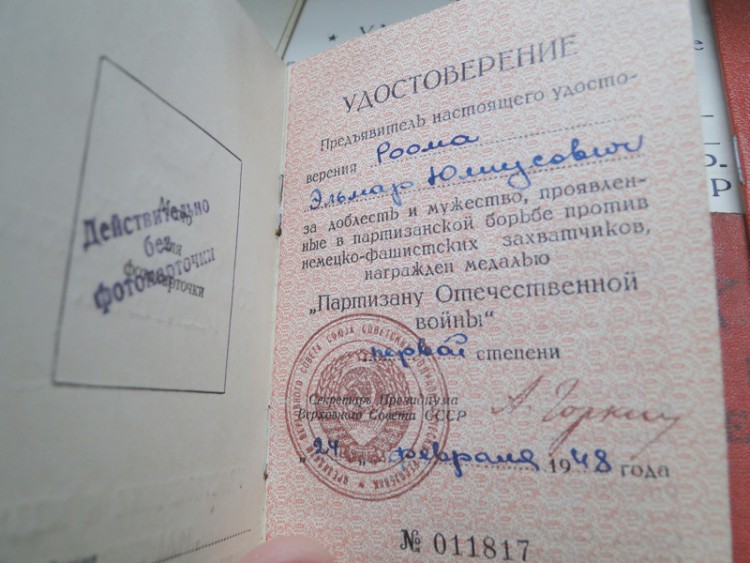 Место
для
фотокарточки
Действительно
без
фотокарточки
УДОСТОВЕРЕНИЕ
Предъявитель настоящего удосто-
верения Роома
Эльмар Юлиусович
за доблесть и мужество, проявлен-
ные в партизанской борьбе против
немецко-фашистских захватчиков,
награжден медалью
„Партизану Отечественной
войны“
первой степени
Секретарь Президиума
Верховного Совета СССР
А. Горкин
„24“ февраля 1948 года
№ 011817